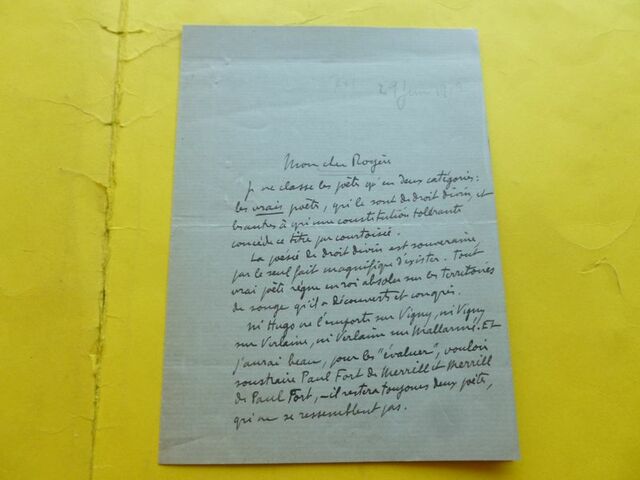 29 juin
Mon cher Royère
Je ne classe les poëts qu'en deux catégories:
les vrais poëts, qui le sont de droit divin, et
les autres à qui une constitution tolérante
concède ce titre par courtoisie.
La poésie de droit divin est souveraine
par le seul fait magnifique d'exister. Tout
vrai poëte règne en roi absolu sur les territoires
de songe qu'il a découverts et conquis.
Ni Hugo ne l'emporte sur Vigny, ni Vigny
sur Verlaine, ni Verlaine sur Mallarmé. Et
j'aurai beau, pour les "évaluer", vouloir
soustraire Paul Fort de Merrill et Merrill
de Paul Fort, — il restera toujours deux poëts,
qui ne se ressemblent pas.